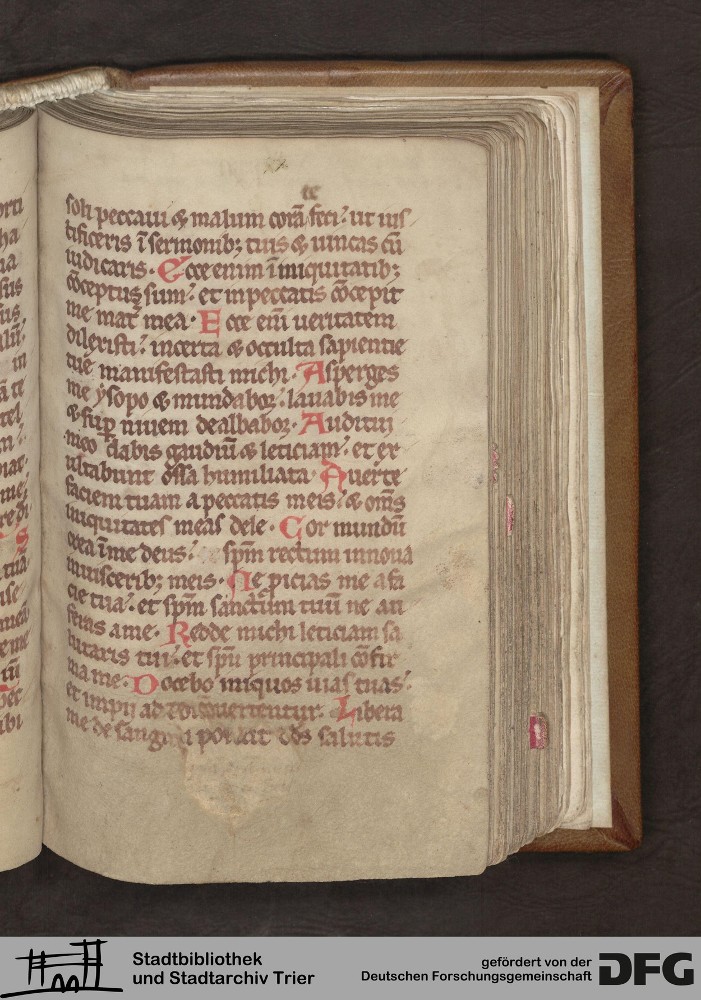 te
soli peccaui & malum corā feci. ut iuſ
tificeris ī sermonib; tuis & uincas cū
iudicaris. Ecce enim ī iniquitatib;
ɔ̄ceptus sum. et in peccatis ɔ̄cepit
me mat̄ mea. Ecce eni ueritatem
dilexisti. incerta & occulta sapientie
tuę manifestasti michi. Asperges
me ysopo & mundabor. lauabis me
& sup niuem dealbabor. Auditui
meo dabis gaudiū & leticiam. et ex
ultabunt ossa humiliata. Auerte
faciem tuam a peccatis meis. & oms
iniquitates meas dele. Cor mundū
crea ī me deus. spm rectum innoua
in uisceribꝫ meis. Ne picias me a fa
cie tua. et spm sanctum tuū ne au
feras a me. Redde michi leticiam sa
lutaris tui. et spu principali ɔ̄fir
ma me. Docebo iniquos uias tuas.
et impii ad te ɔuertentur. Libera
me de salutis
Stadtbibliothek
und Stadtarchiv Trier
gefördert von der
Deutschen Forschungsgemeinschaft
DFG